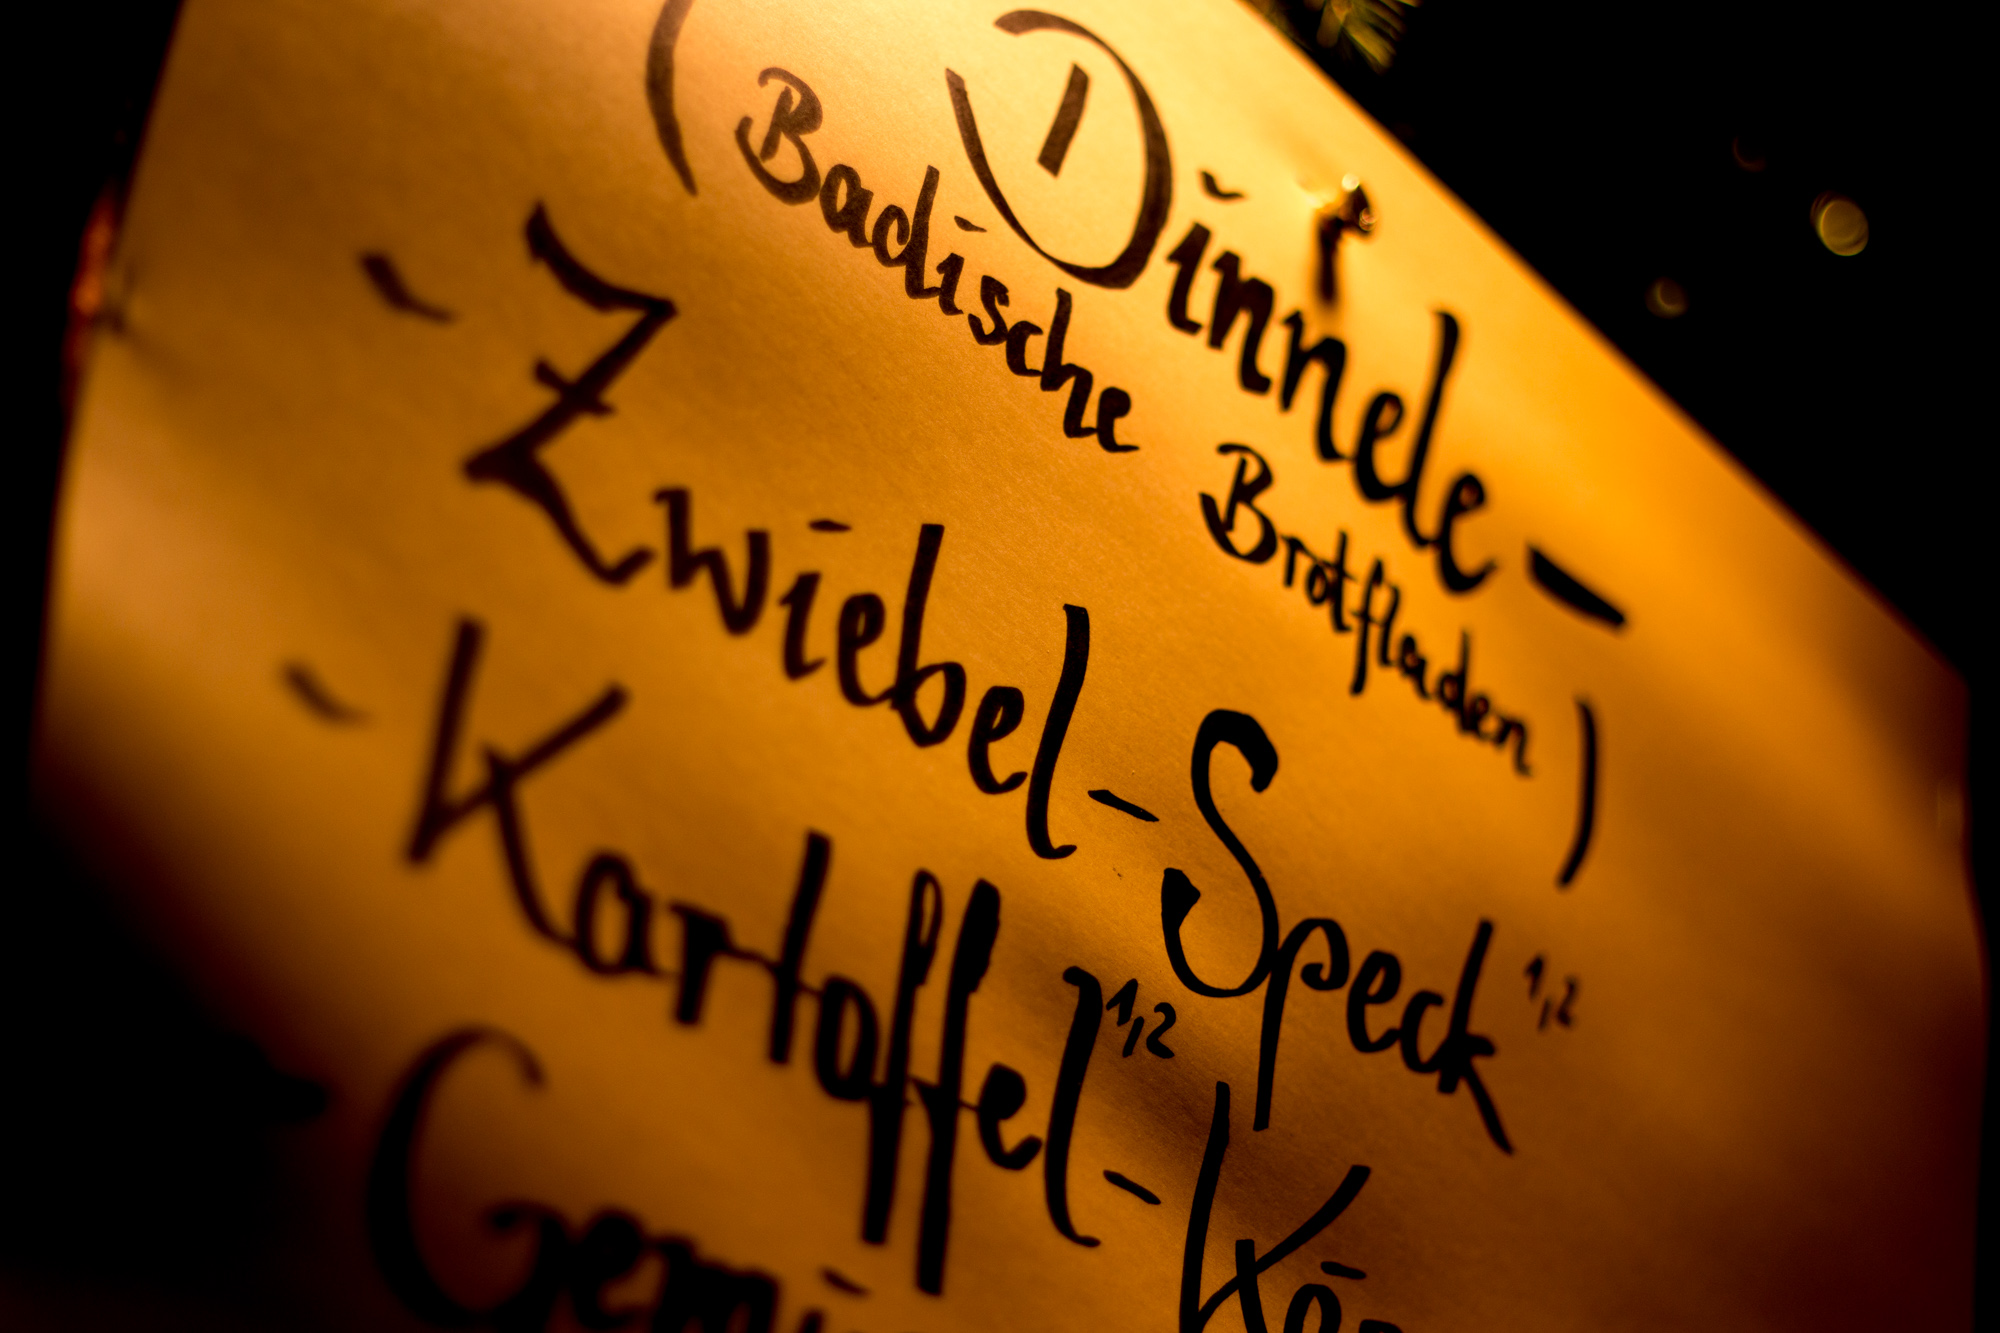 Dinnele-
(Badische Brotfladen)
- Zwiebel-Speck 1,2
- Kartoffel 1,2